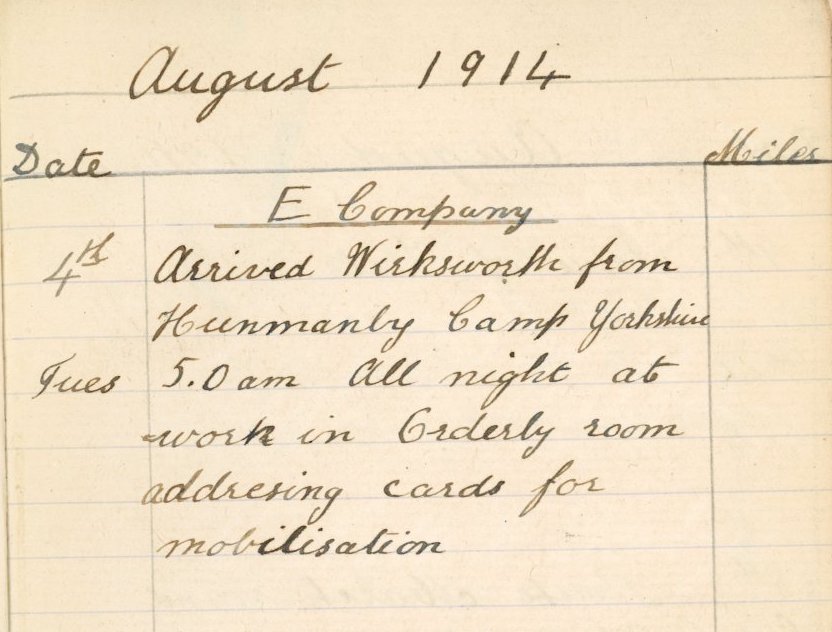 August 1914
Date Miles
E Company
4th Arrived Wirksworth from
Hunmanby Camp Yorkshire
Tues 5.0 am All night at
work in Orderly room
addresing cards for
mobilisation